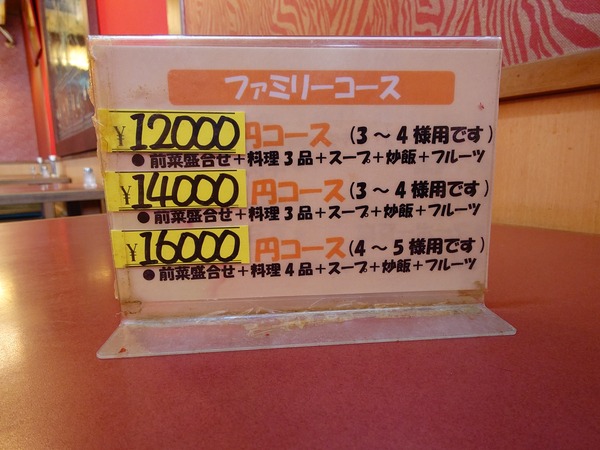 ファミリーコース
¥12000円コース (3〜4様用です)
●前菜盛合せ+料理3品+スープ+炒飯+フルーツ
¥14000円コース (3〜4様用です)
●前菜盛合せ+料理3品+スープ+炒飯+フルーツ
¥16000円コース (4〜5様用です)
●前菜盛合せ+料理4品+スープ+炒飯+フルーツ